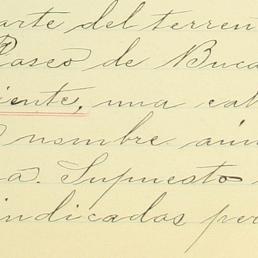 arte del terren
Paseo de Buca
iente, una cab
nombre aún
a. Supuesto
indicadas per